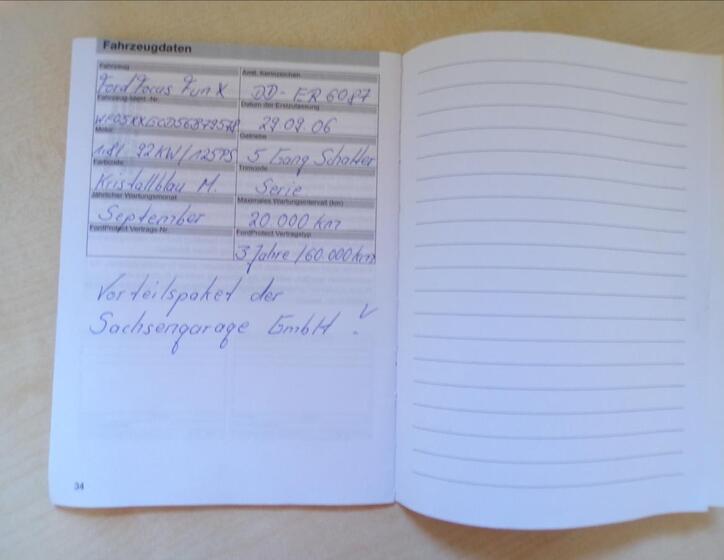 Fahrzeugdaten
Fahrzeug Amtl. Kennzeichen
Ford Focus Fun X DD-ER 6087
Fahrzeug-Ident.-Nr. Datum der Erstzulassung
29.09.06
Motor Getriebe
1.8l 92KW/125PS 5 Gang Schalter
Farbcode Trimcode
Kristallblau M. Serie
Jährlicher Wartungsmonat Maximales Wartungsintervall (km)
September 20.000 km
FordProtect Vertrags-Nr. FordProtect Vertragstyp
3 Jahre/60.000km
Vorteilspaket der
Sachsengarage GmbH !
34